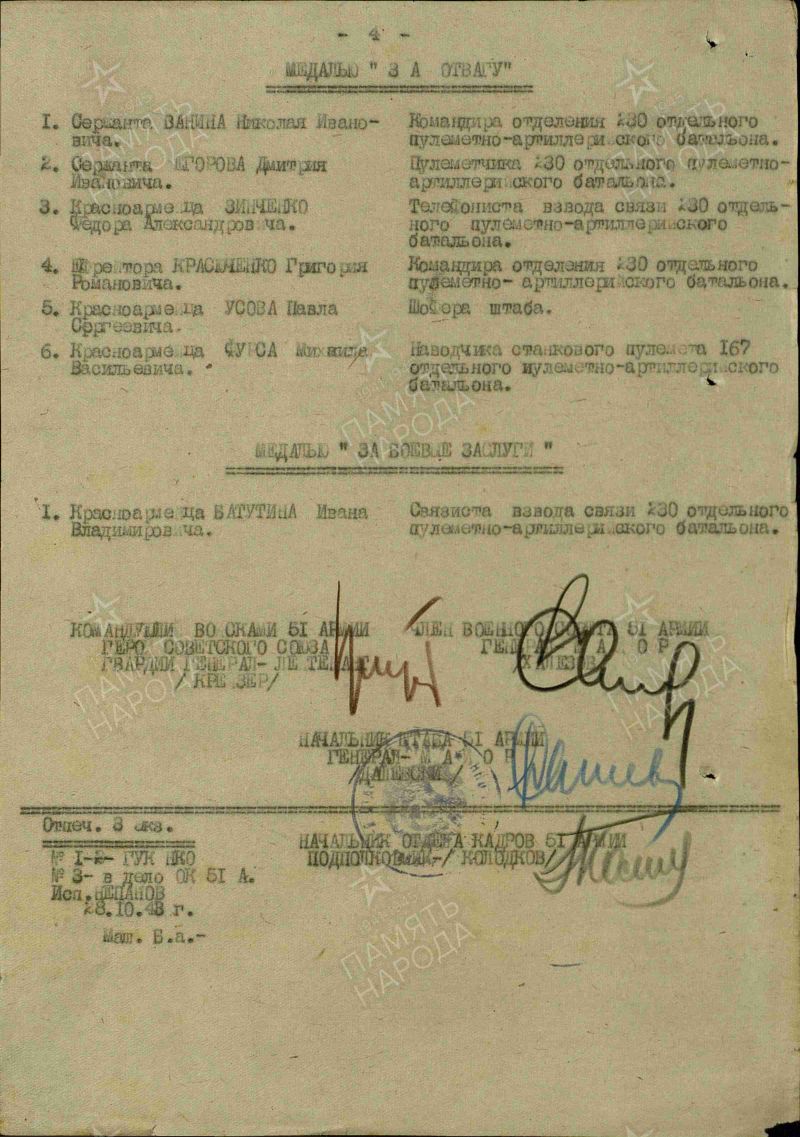 - 4 -
МЕДАЛЬЮ " З А ОТВАГУ"
I. Сержанта ВАНИНА Николая Ивано-
вича.
Командира отделения 230 отдельного
пулеметно-артиллерийского батальона.
2. Сержанта ЕГОРОВА Дмитрия
Ивановича.
Пулеметчика 230 отдельного пулеметно-
артиллерийского батальона.
3. Красноармейца ЗИНЧЕНКО
Федора Александровича.
Телефониста взвода связи 230 отдель-
ного пулеметно-артиллерийского
батальона.
4. Григория
Романовича.
Командира отделения 230 отдельного
пулеметно- артиллерийского батальона.
5. Красноармейца УСОВА Павла
Сергеевича.
Шофера штаба.
6. Красноармейца ФУРСА Михаила
Васильевича.
Наводчика станкового пулемета I67
отдельного пулеметно-артиллерийского
батальона.
МЕДАЛЬЮ " ЗА БОЕВЫЕ ЗАСЛУГИ "
I. Красноармейца БАТУТИНА Ивана
Владимировича.
Связиста взвода связи 230 отдельного
пулеметно-артиллерийского батальона.
КОМАНДУЮЩИЙ ВОЙСКАМИ 5I АРМИИ
ГЕРОЙ СОВЕТСКОГО СОЮЗА
ГВАРДИИ ГЕНЕРАЛ- ЛЕЙТЕНАНТ
/ КРЕЙЗЕР/
ЧЛЕН ВОЕННОГО СОВЕТА 5I АРМИИ
ГЕНЕРАЛ- М А Й О Р
НАЧАЛЬНИК ШТАБА 5I АРМИИ
ГЕНЕРАЛ- М А Й О Р
/ДАШЕВСКИЙ/
Отпеч. 3 экз.
№ I-2- ГУК НКО
№ 3- в дело ОК 5I А.
Исп.
28.I0.43 г.
Маш. Б.а.-
НАЧАЛЬНИК ОТДЕЛА КАДРОВ 5I АРМИИ
ПОДПОЛКОВНИК-/ КОЛОДКОВ/
ПАМЯТЬ НАРОДА